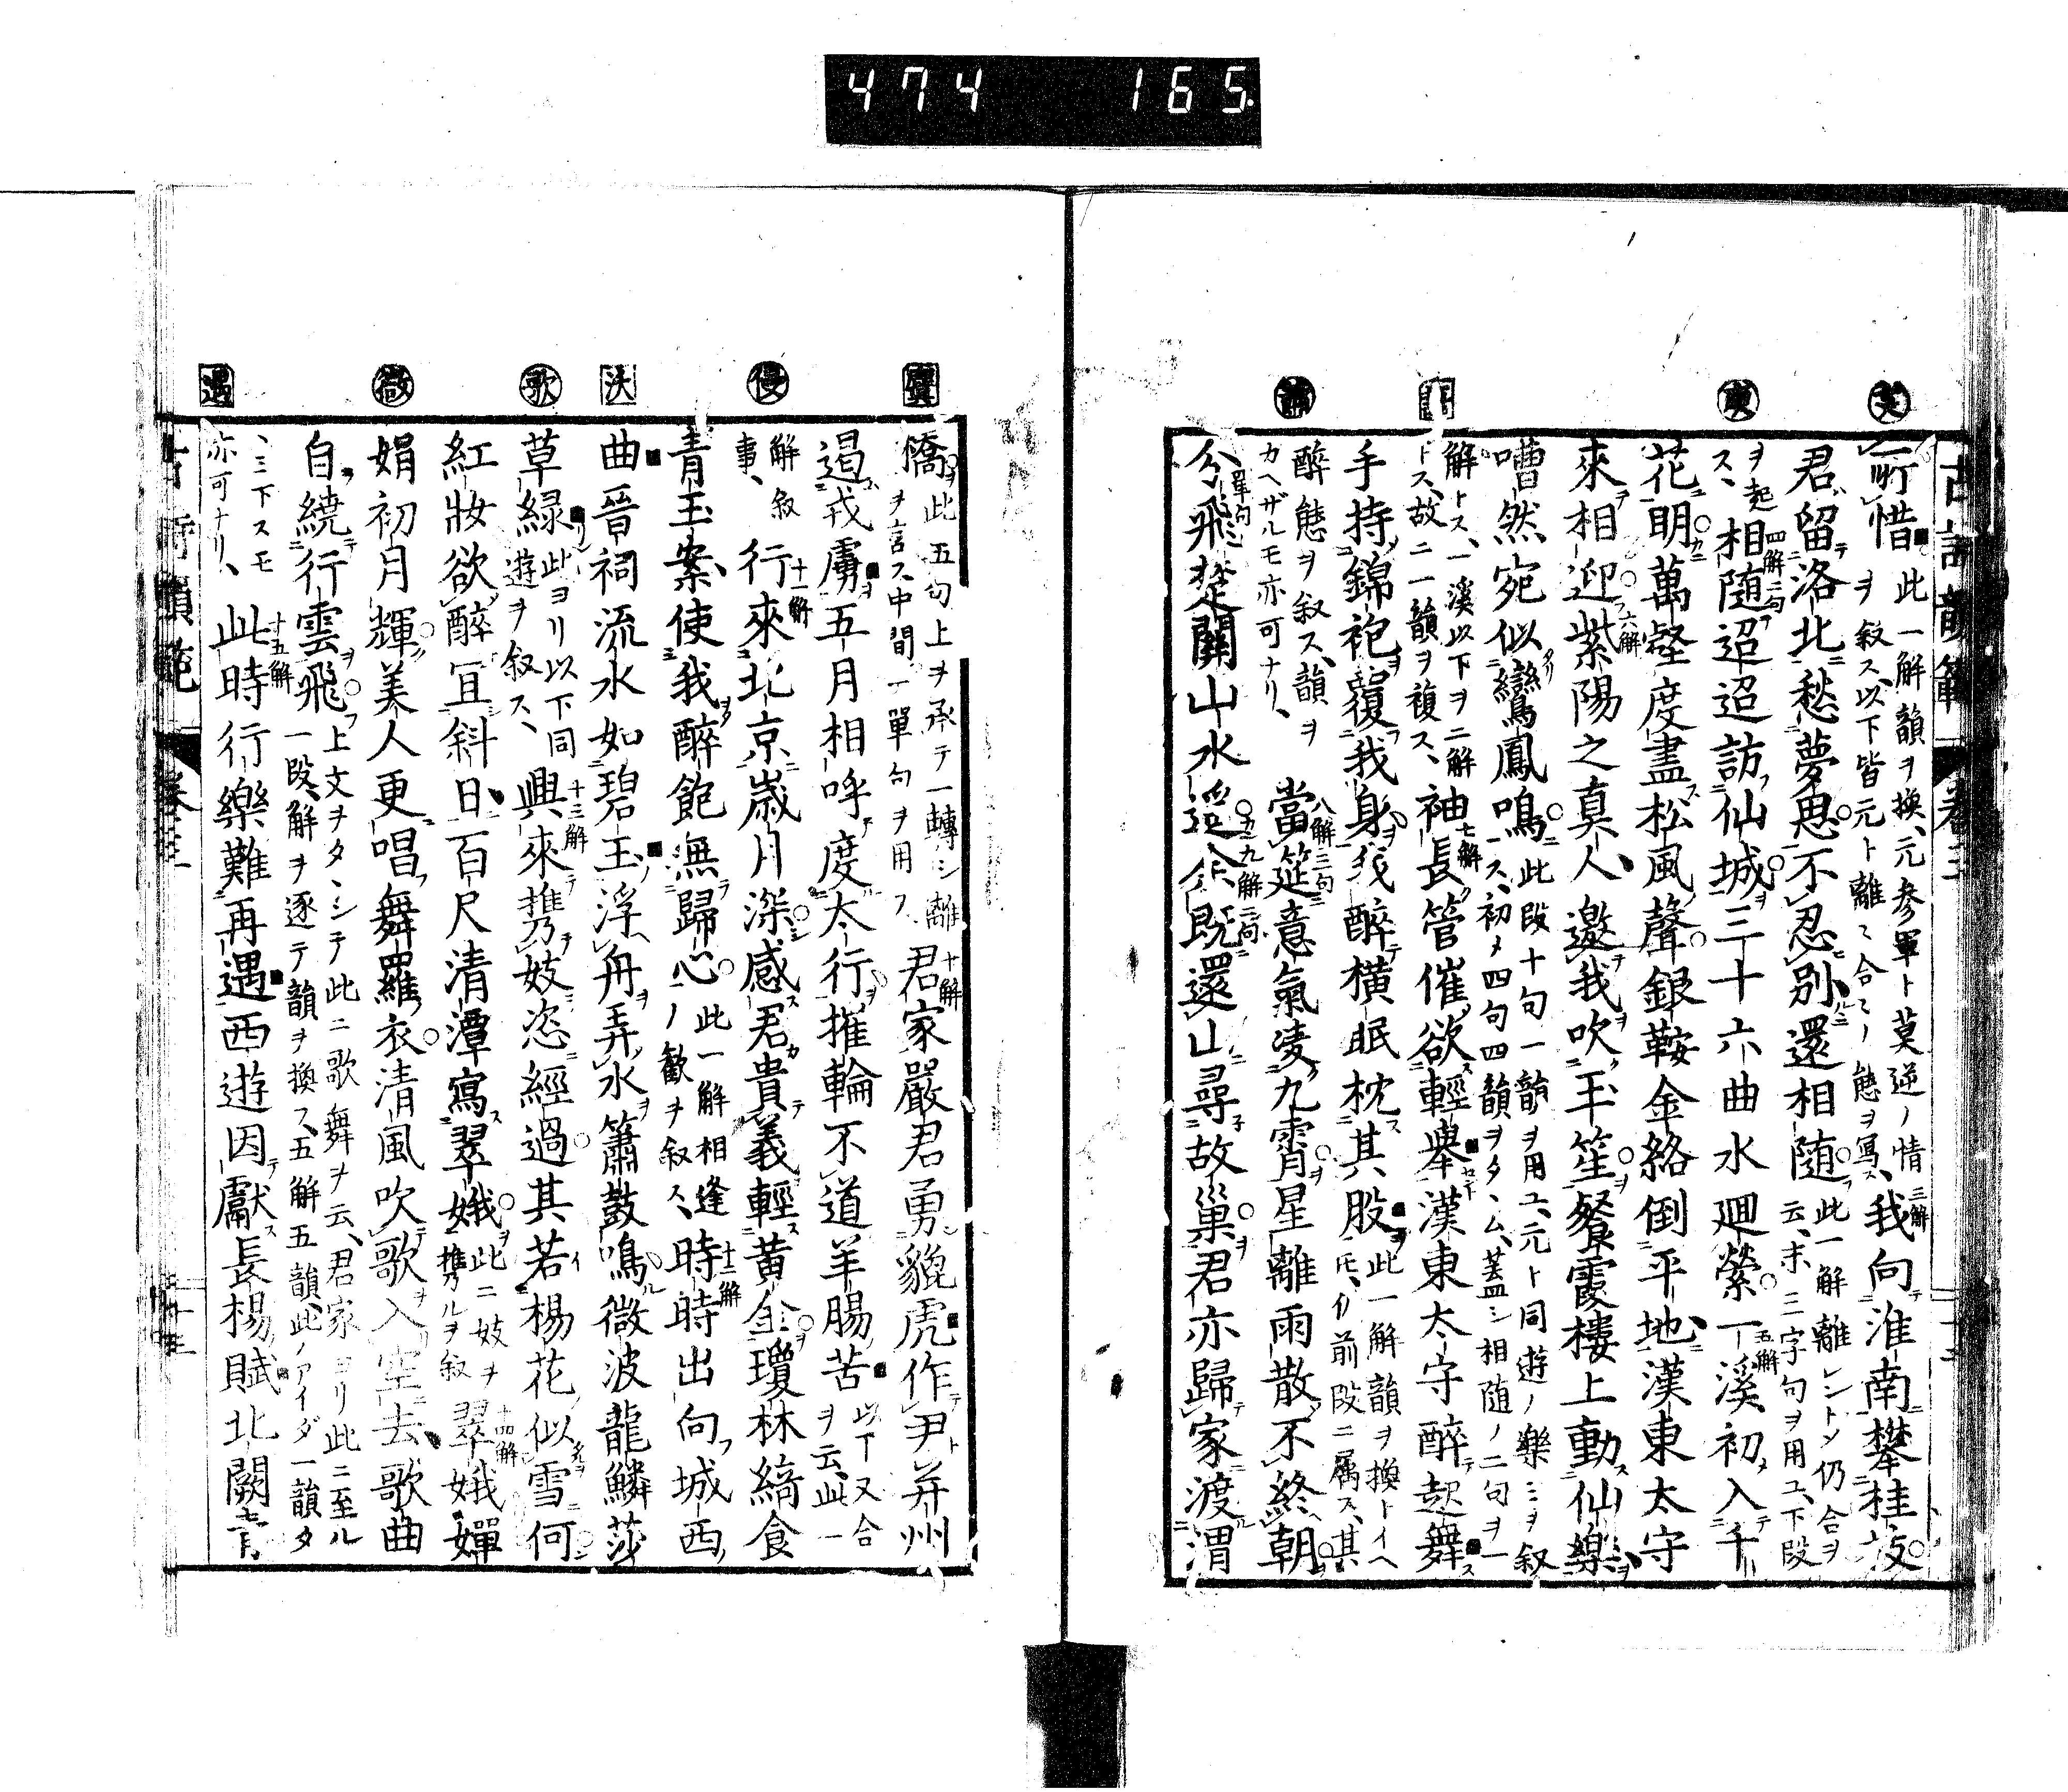 474 165
古詩韻範 卷三
所惜 此一解韻ヲ換、元參軍ト莫逆ノ情ヲ叙ス、以下皆元ト離ミ合ミノ態ヲ寫ス、 三解 我向淮南攀桂枝
君留洛北愁夢思不忍別還相隨 此一解離レントシ仍合ヲ云、末三字句ヲ用ユ、下段
ヲ起ス、 四解二句 相隨迢迢訪仙城三十六曲水廻縈 五解 一溪初入千
花明萬壑度盡松風聲銀鞍金絡倒平地漢東太守
來相迎 六解 紫陽之真人邀我吹玉笙餐霞樓上動仙樂
嘈然宛似鸞鳳鳴 此段十句一韻ヲ用ユ、元ト同遊ノ樂ミヲ叙ス、初メ四句四韻ヲタヽム、蓋シ相隨ノ二句ヲ一
解トス、一溪以下ヲ二解トス、故ニ一韻ヲ複ス、 七解 袖長管催欲輕舉漢東太守醉起舞
手持錦袍覆我身我醉橫眠枕其股 此一解韻ヲ換トイヘ𪜈、仍前段ニ属ス、其
醉態ヲ叙ス、韻ヲカヘザルモ亦可ナリ、 八解三句 當筵意氣凌九霄星離雨散不終朝
單句 分飛楚關山水遙 九解二句 余既還山尋故巢君亦歸家渡渭
橋 此五句上ヲ承テ一轉シ離ヲ言ス、中間一單句ヲ用フ、 十解 君家嚴君勇貔虎作尹并州
遏戎虜五月相呼度太行摧輪不道羊腸苦 以下又合ヲ云、此一
解叙事、 十一解 行來北京歲月深感君貴義輕黃金瓊杯綺食
青玉案使我醉飽無歸心 此一解相逢ノ歡ヲ叙ス、 十二解 時時出向城西
曲晉祠流水如碧玉浮舟弄水簫鼓鳴微波龍鱗莎
草綠 此ヨリ以下同遊ヲ叙ス、 十三解 興來攜妓恣經過其若楊花似雪何
紅妝欲醉宜斜日百尺清潭寫翠娥 此ニ妓ヲ攜ルヲ叙 十四解 翠娥嬋
娟初月輝美人更唱舞羅衣清風吹歌入空去歌曲
自繞行雲飛 上文ヲタヽシテ此ニ歌舞ヲ云、君家ヨリ此ニ至ル一段、解ヲ逐テ韻ヲ換フ、五解五韻、此ノアイダ一韻タ
ヽミ下スモ亦可ナリ、 十五解 此時行樂難再遇西遊因獻長楊賦北闕青
古詩韻範 卷三